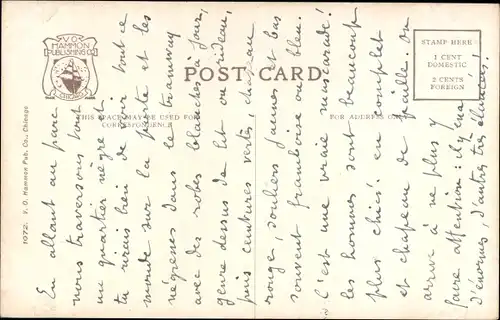 V.O. HAMMON PUBLISHING CO.
CHICAGO
POST CARD
THIS SPACE MAY BE USED FOR CORRESPONDENCE
FOR ADDRESS ONLY
STAMP HERE
1 CENT
DOMESTIC
2 CENTS
FOREIGN
1072. V. O. Hammon Pub. Co., Chicago
En allant au parc
nous traversons tout
un quartier nègre et
tu rirais bien de voir tout ce
monde sur la porte et les
négresses dans le tramway
avec des robes blanches à jour,
genre dessus de lit ou rideau,
puis ceintures vertes, chapeau
rouge, souliers jaunes et bas
souvent framboise ou bleu.
C'est une vraie mascarade!
les hommes sont beaucoup
plus chics en complet
et chapeau de paille. On
arrive à ne plus y
faire attention: il y en a
d'énormes, d'autres très élancées.